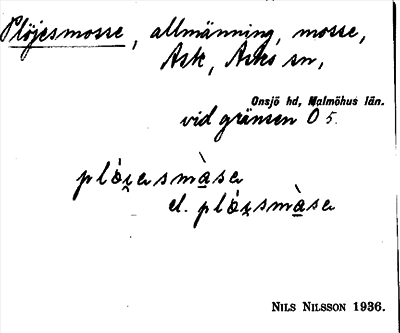 Plöjesmosse, allmänning, mosse,
Ask, Asks sn,
Onsjö hd, Malmöhus län.
vid gränsen O 5.
el.
NILS NILSSON 1936.